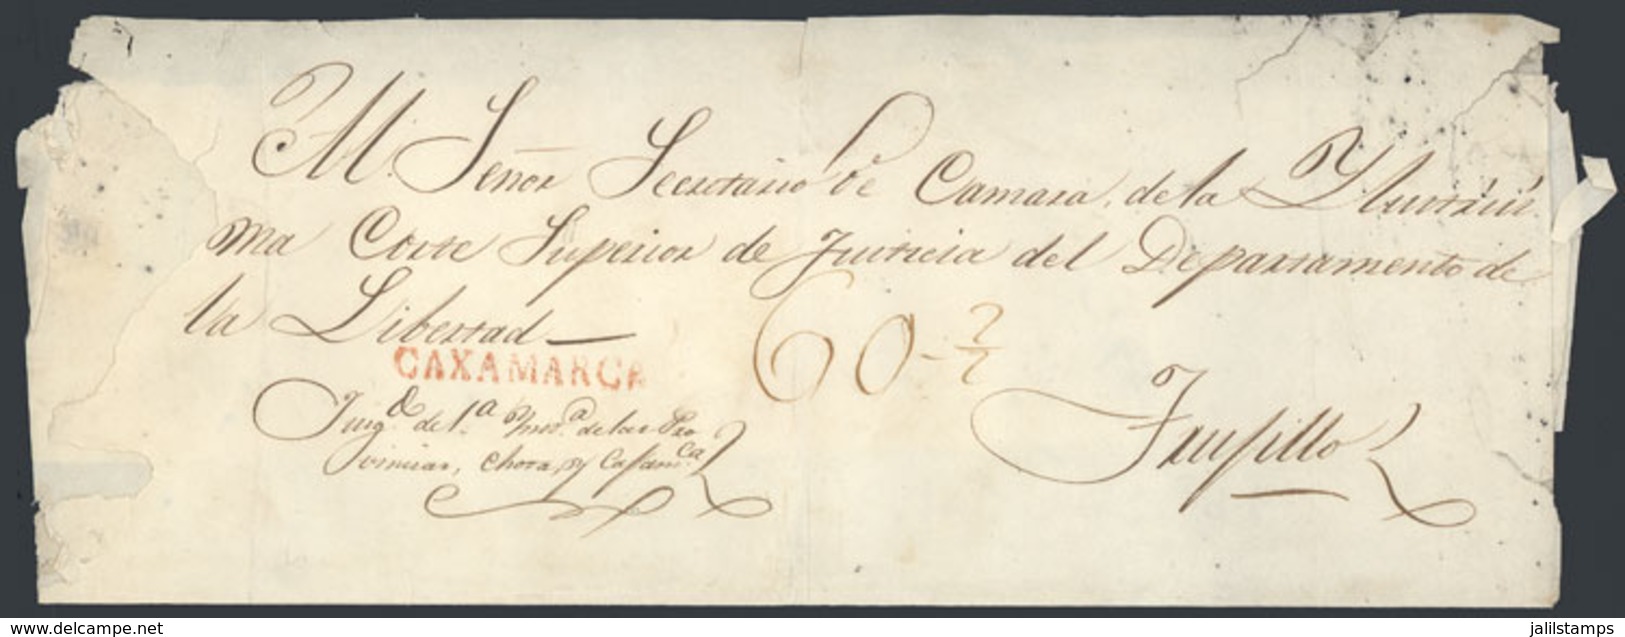 Al Señor Secretario de Camara, de la Ylustrísi
ma Corte Superior de Justicia del Departamento de
la Libertad
CAXAMARCA
60 - 2/7
Juzg.do de 1.a Ynst.a de las Pro
vincias, Chota, y Cajam.ca
Trujillo
www.delcampe.net
jalilstamps